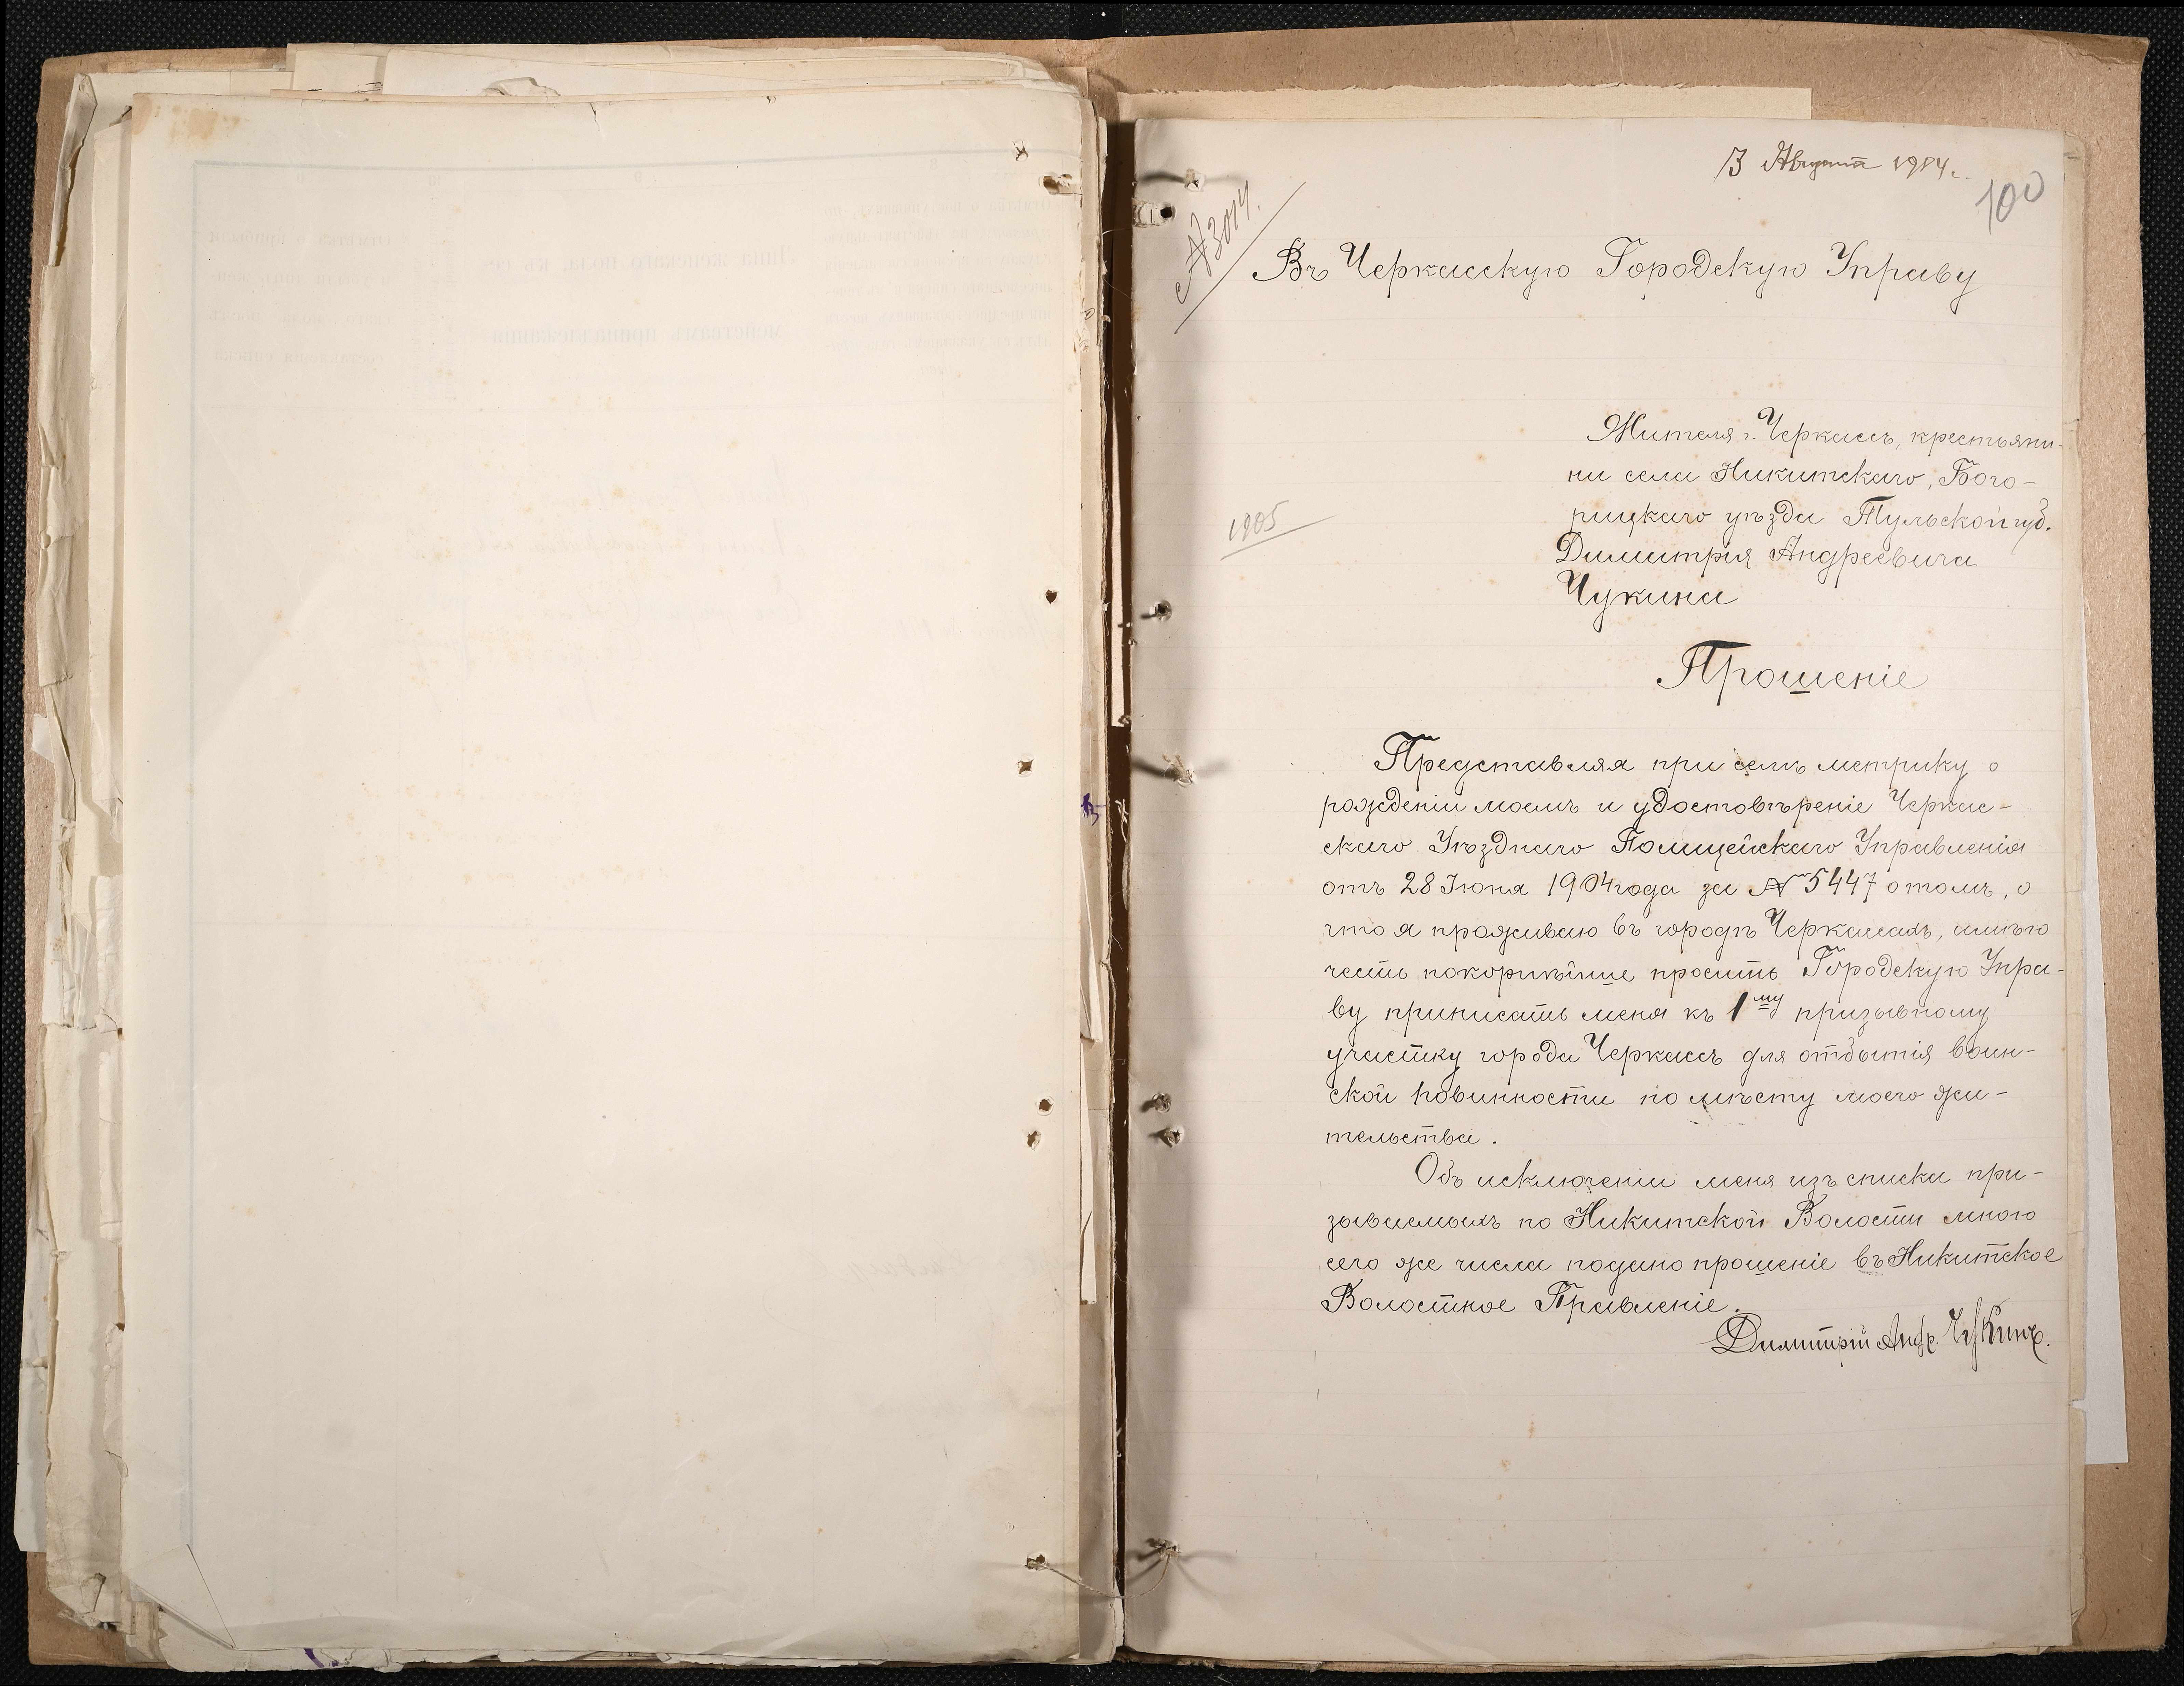 3 Августа 1904 г.
100
№ 3014.
Въ Черкасскую Городскую Управу
Жителя г. Черкассъ, крестьяни-
на села Никитскаго, Бого-
рицкаго уѣзда Тульской губ.
Димитрія Андреевича
Чукина
1905
Прошеніе
Представляя при семъ метрику о
рожденіи моемъ и удостовѣреніе Черкас-
скаго Уѣзднаго Полицейскаго Управленія
отъ 28 Іюня 1904 года за № 5447 о томъ, о
что я проживаю въ городѣ Черкассахъ, имѣю
честь покорнѣйше просить Городскую Упра-
ву приписать меня къ 1му призывному
участку города Черкассъ для отбытія воин-
ской повинности по мѣсту моего жи-
тельства.
Объ исключеніи меня изъ списка при-
зываемыхъ по Никитской Волости мною
сего же числа подано прошеніе въ Никитское
Волостное Правленіе.
Димитрій Андр. Чукинъ.